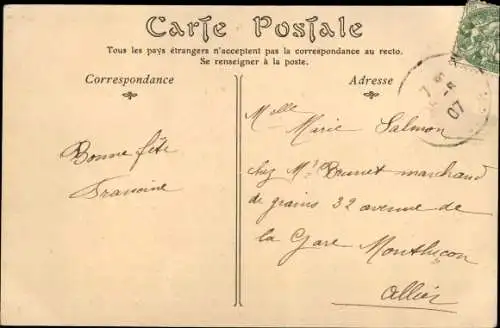 Carte Postale
Tous les pays étrangers n'acceptent pas la correspondance au recto.
Se renseigner à la poste.
Correspondance
Adresse
Bonne fête
Melle
Marie Salmon
chez Mr Brunet marchand
de grains 32 avenue de
la Gare Montluçon
Allier
07